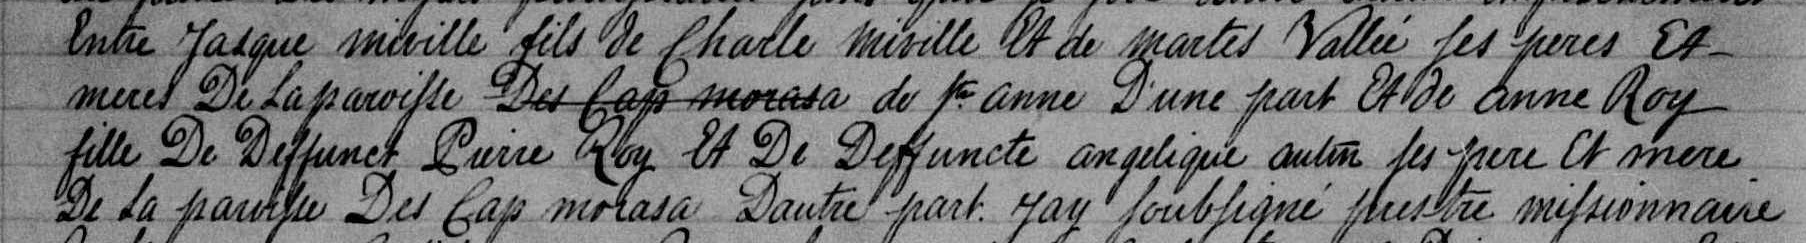 Entre Jasque miville fils de Charle Miville Et de martes Vallée ses peres Et
meres De Laparoisse Des Cap morasa de ste anne D'une part Et de anne Roy
fille De Deffunct Pierre Roy Et De Deffuncte angelique autin ses pere Et mere
De La paroisse Des Cap morasa Dautre part. Jay soubsigné prestre missionnaire